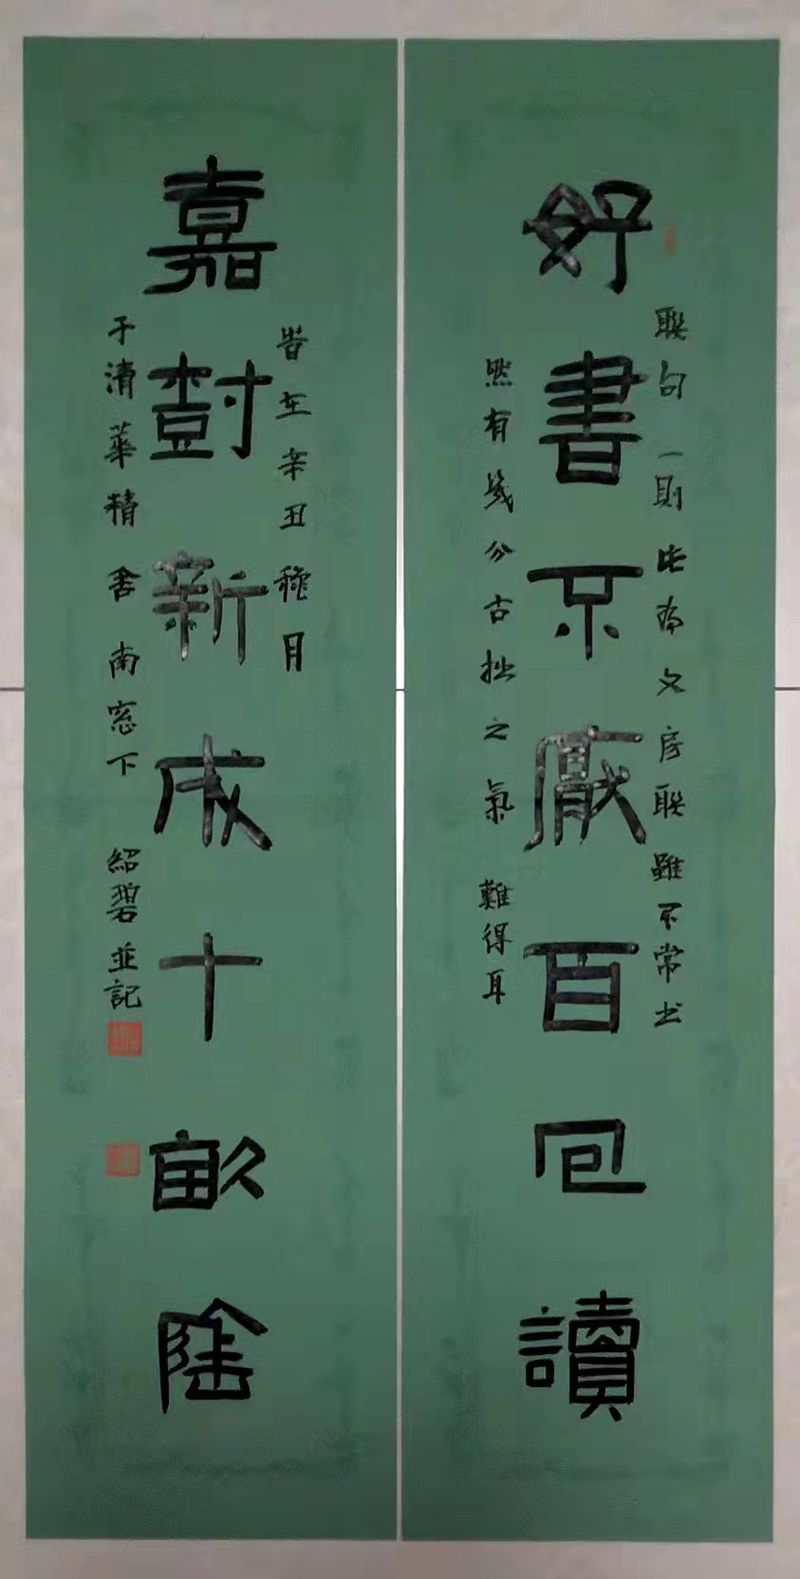 好書不厭百回讀
聯句一則此為文房聯雖不常書
然有幾分古拙之氣難得耳
嘉樹新成十畝陰
時在辛丑穐月
于清華積舍南窓下 紹碧並記